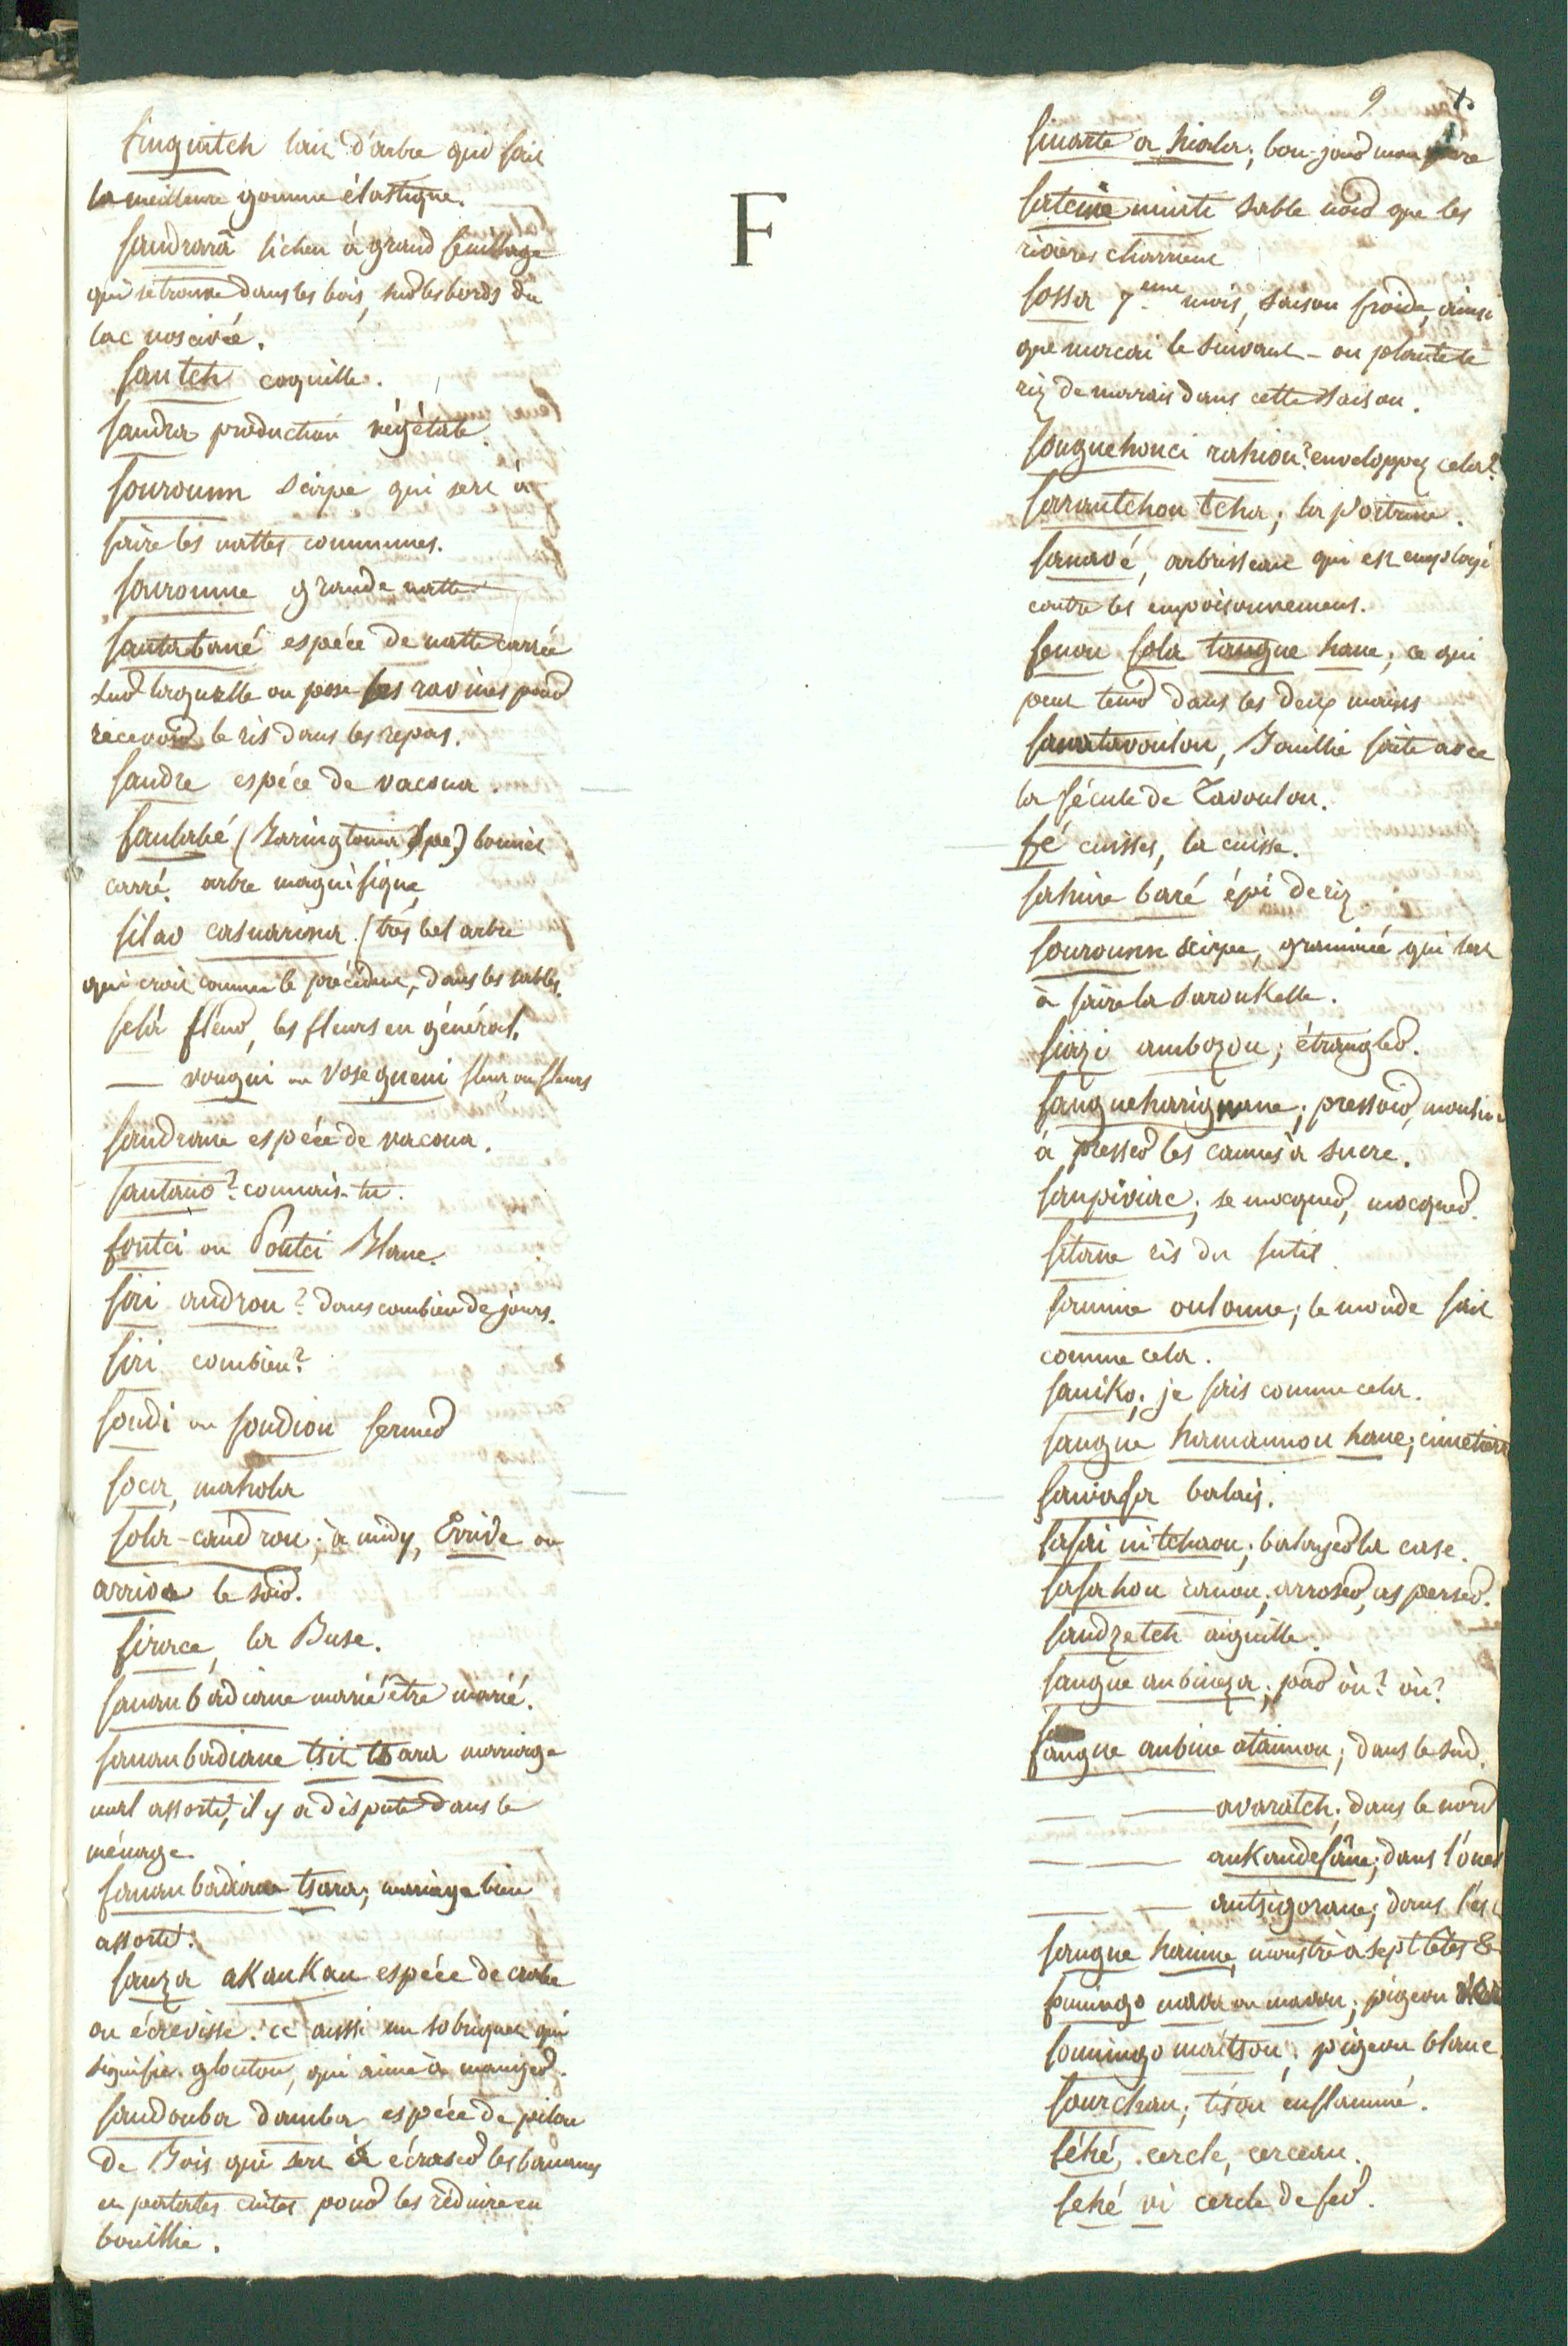 F
finguitch lait d'arbre qui fait
la meilleure gomme élastique.
fandrarà lichen à grand feuillage
qui se trouve dans les bois, sur les bords du
lac nossivée.
fantch coquille.
fandra production végétale.
fouroumn scirpe qui sert à
faire les nattes communes.
fouroumne grande natte
fantabané espéce de natte carrée
sur laquelle on pose les ravines pour
recevoir le ris dans les repas.
fandre espéce de vacoua.
fantabé (Baringtonia spe.) bonnet
carré. arbre magnifique
filao casuarina. (très bel arbre
qui croit comme le précédent, dans les sables.
felà fleur, les fleurs en général.
— vougni ou vosegueni fleur ou fleurs
fandrane espéce de vacoua.
fantano? connais-tu.
foutci ou Poutci Blanc.
firi androu? dans combien de jours.
firi combien?
foudi ou foudiou fermer
foca, mahola
fola-candrou; à midy, Evride ou
arriva le soir.
firace, la Buse.
fananbadiane marié être marié.
fananbadiane tsit tsara marriage
mal assorti, il y a dispute dans le
ménage.
fananbadiane tsara; mariage bien
assorti.
fanza akankan espéce de crabe
ou écrevisse. cc aussi un sobriquet qui
signifie glouton, qui aime à manger.
fandouba damba espéce de pilon
de Bois qui sert à écraser les bananes
et patates cuites pour les réduire en
bouillie.
9
finarte a hiala; bon-jour mon père
fateine minti sable noir que les
rivières charrient
fossa 7.eme mois, saison froide, ainsi
que marcai le suivant - on plante le
riz de marais dans cette saison.
fonguehouci rahiou? enveloppez cela?
faraoutchou tcha; la poitrine.
fanavé, arbrisseau qui est employé
contre les empoisonnemens.
fenou fola tangue hane; ce qui
peut tenir dans les deux mains
fanatavoulou, Bouillie faite avec
la fécule de Tavoulou.
fé cuisses, la cuisse.
fahine baré épi de riz
fouroumn scirpe, graminée qui sert
à faire la saroukelle.
fiazi ambozou; étrangler.
fangueharignane; pressoir, moulin
à presser les cannes à sucre.
fanpiviac; se mocquer, mocquer.
fitane ris du futil
fanmine oulonne; le monde fait
comme cela.
faniko; je fais comme cela.
fangue hamannou hane; cimetiere
fanafa balais.
fafai ni tchaou; balayer la case.
fafahou ranou; arroser, asperser.
fandzetch aiguille.
fangue anbineza; par où? où?
fangue anbine atainou; dans le sud.
— — avaratch; dans le nord
— — ankandéfâne; dans l'ouest
— — antsigorane; dans l'est
fangue hainne, monstre à sept têtes &
founingo maia ou mavou; pigeon
founingo maitsou; pigeon blanc
fourchau; tison enflammé.
féhé, cercle, cerceau.
fehé vi cercle de fer.